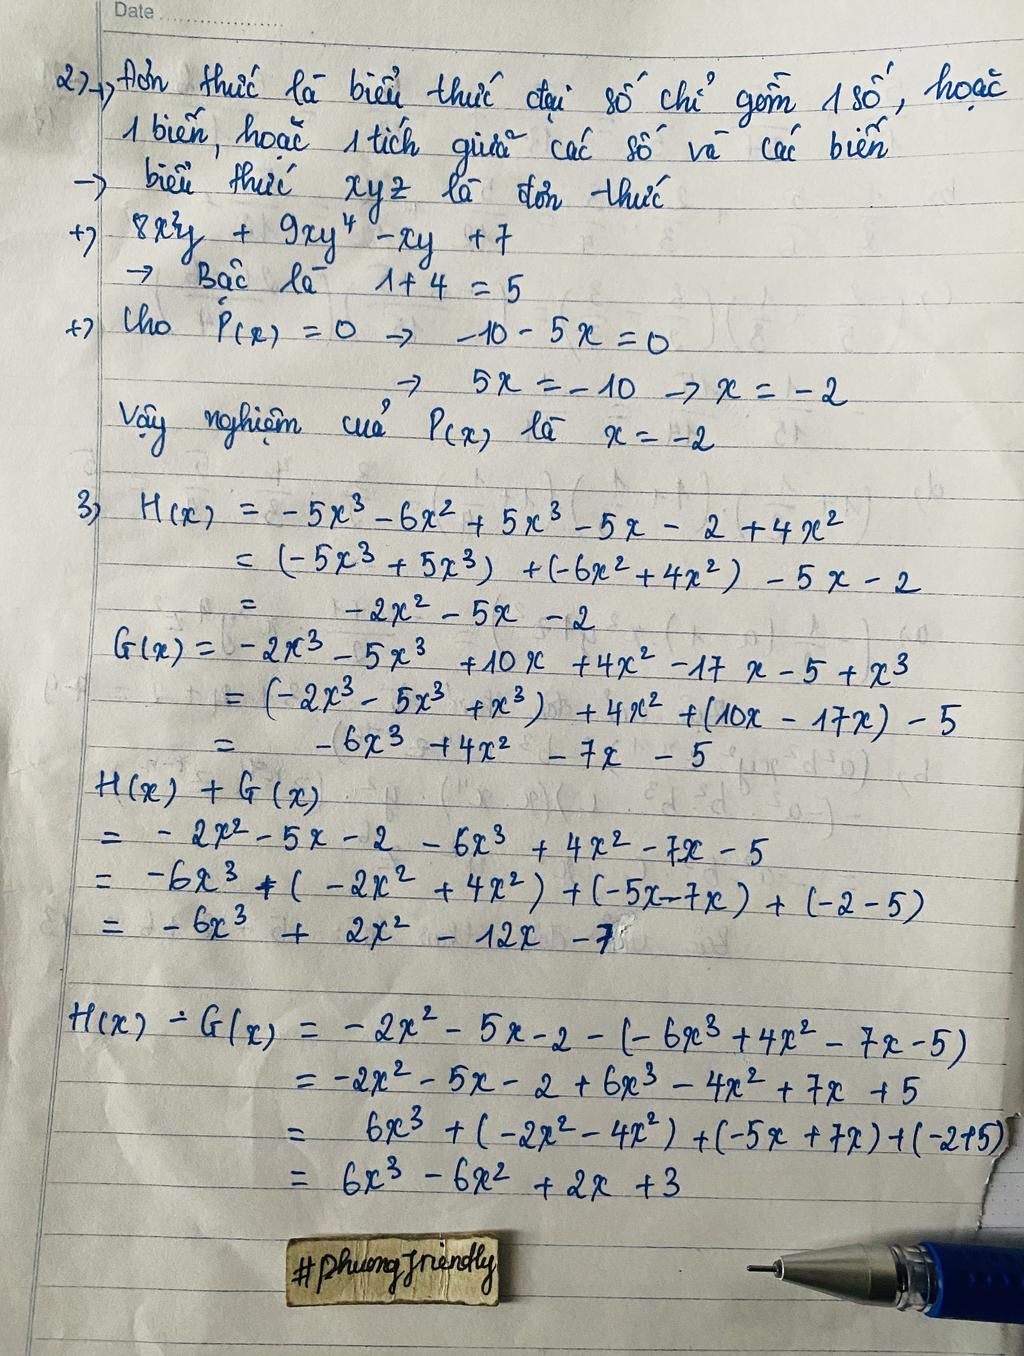 Date
2) +) Đơn thức là biểu thức đại số chỉ gồm 1 số, hoặc
1 biến, hoặc 1 tích giữa các số và các biến
→ biểu thức xyz là đơn thức
+) 8x²y + 9xy⁴ - xy + 7
→ Bậc là 1 + 4 = 5
+) Cho P(x) = 0 → -10 - 5x = 0
→ 5x = -10 → x = -2
Vậy nghiệm của P(x) là x = -2
3) H(x) = -5x³ - 6x² + 5x³ - 5x - 2 + 4x²
= (-5x³ + 5x³) + (-6x² + 4x²) - 5x - 2
= -2x² - 5x - 2
G(x) = -2x³ - 5x³ + 10x + 4x² - 17x - 5 + x³
= (-2x³ - 5x³ + x³) + 4x² + (10x - 17x) - 5
= -6x³ + 4x² - 7x - 5
H(x) + G(x)
= -2x² - 5x - 2 - 6x³ + 4x² - 7x - 5
= -6x³ + (-2x² + 4x²) + (-5x - 7x) + (-2 - 5)
= -6x³ + 2x² - 12x - 7
H(x) - G(x) = -2x² - 5x - 2 - (-6x³ + 4x² - 7x - 5)
= -2x² - 5x - 2 + 6x³ - 4x² + 7x + 5
= 6x³ + (-2x² - 4x²) + (-5x + 7x) + (-2+5)
= 6x³ - 6x² + 2x + 3
#phuongfriendly